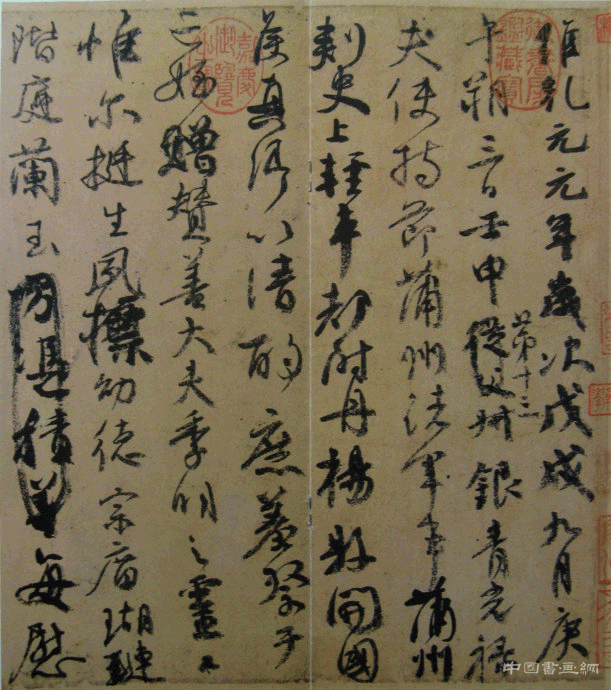 維乾元元年歲次戊戌九月庚
午朔三日壬申第十三從父叔銀青光祿
夫使持節蒲州諸軍事蒲州
刺史上輕車都尉丹楊縣開國
侯真卿以清酌庶羞祭于
亡姪贈贊善大夫季明之靈曰
惟爾挺生夙標幼德宗廟瑚璉
階庭蘭玉方憑積善每慰
御書房鑑藏寶
嘉慶御覽之寶
中国書画網